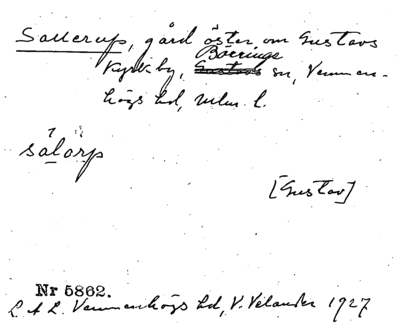 Sallerup, gård öster om Gustavs
Börringe
kyrkby, Gustavs sn, Vemmen-
högs hd, Mlm. l.
sálòrp
[Gustav]
Nr 5862.
L A L. Vemmenhögs hd, V. Velander 1927